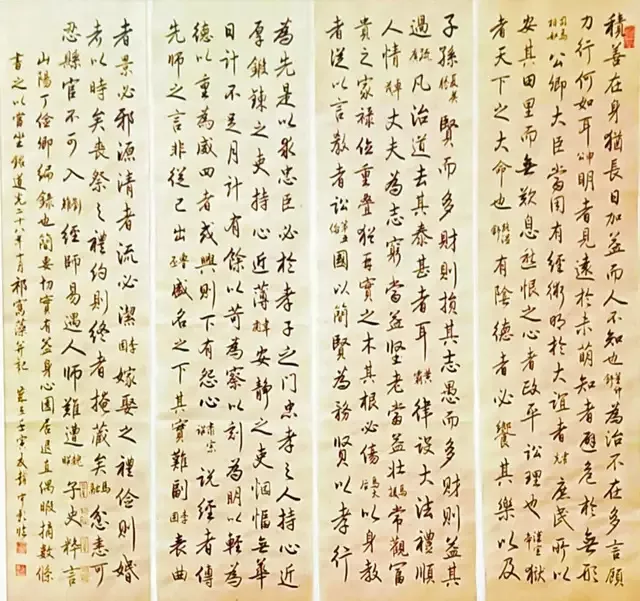 積善在身猶長日加益而人不知也仲舒為治不在多言顧
力行何如耳申公明者見遠於未萌知者避危於無形
司馬相如公卿大臣當用有經術明於大誼者庶民所以
安其田里而無歎息愁恨之心者政平訟理也漢宣帝獄
者天下之大命也路溫舒有陰德者必饗其樂以及
子孫夏侯賢而多財則損其志愚而多財則益其
過疏廣凡治道去其泰甚者耳黃霸律設大法禮順
人情卓茂丈夫為志窮當益堅老當益壯馬援常觀富
貴之家祿位重疊猶再實之木其根必傷馬后以身教
者從以言教者訟第五倫國以簡賢為務賢以孝行
為先是以求忠臣必於孝子之門忠孝之人持心近
厚鍛鍊之吏持心近薄韋彪安靜之吏悃愊無華
日計不足月計有餘以苛為察以刻為明以輕為
德以重為威四者或興則下有怨心肅宗說經者傳
先師之言非從己出魯丕盛名之下其實難副李固表曲
者景必邪源清者流必潔李固嫁娶之禮儉則婚
者以時矣喪祭之禮約則終者掩藏矣馬融忿恚可
忍縣官不可入劉矩經師易遇人師難遭魏昭子史粹言
山陽丁儉卿編錄也簡要切實有益身心園居退直偶暇摘數條
書之以當坐銘道光二十八年十月祁寯藻并記